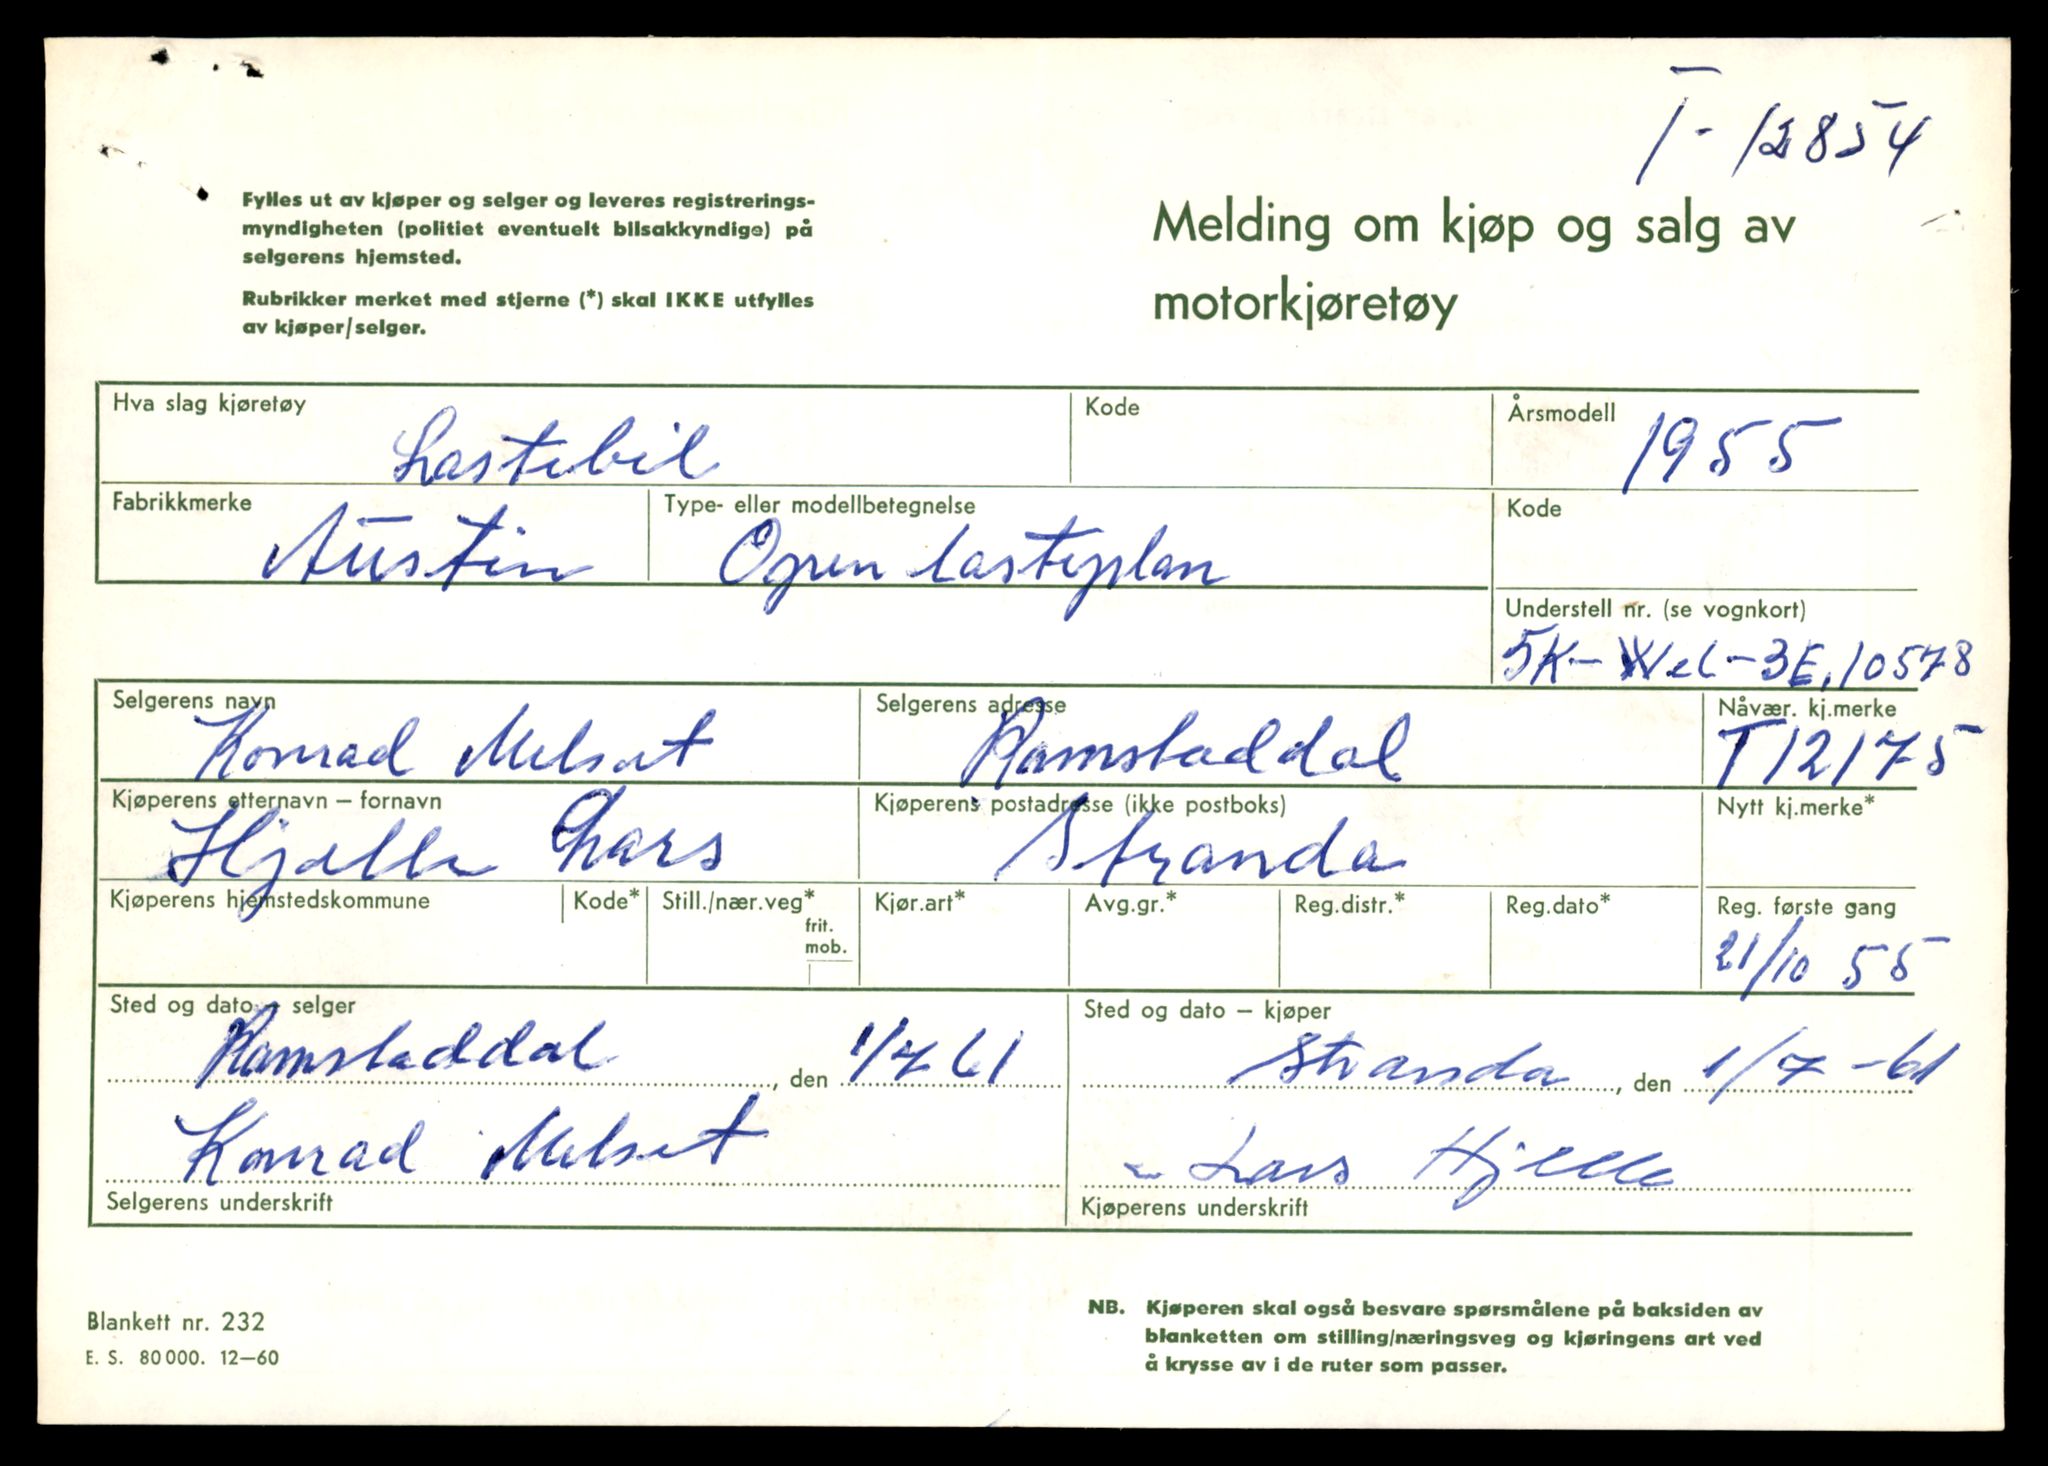 T-12854
Fylles ut av kjøper og selger og leveres registrerings-
myndigheten (politiet eventuelt bilsakkyndige) på
selgerens hjemsted.
Rubrikker merket med stjerne (*) skal IKKE utfylles
av kjøper/selger.
Melding om kjøp og salg av
motorkjøretøy
Hva slag kjøretøy Kode Årsmodell
Lastebil 1955
Fabrikkmerke Type- eller modellbetegnelse Kode
Austin Open lasteplan
Understell nr. (se vognkort)
5K-Wel-3E.10578
Selgerens navn Selgerens adresse Nåvær. kj.merke
Konrad Melset Ramstaddal T12175
Kjøperens etternavn – fornavn Kjøperens postadresse (ikke postboks) Nytt kj.merke*
Hjelle Lars Stranda
Kjøperens hjemstedskommune Kode* Still./nær.veg* Kjør.art* Avg.gr.* Reg.distr.* Reg.dato* Reg. første gang
frit.
mob.
21/10 55
Sted og dato – selger Sted og dato – kjøper
Ramstaddal, den 1/7 61 Stranda, den 1/7-61
Konrad Melset Lars Hjelle
Selgerens underskrift Kjøperens underskrift
Blankett nr. 232
E. S. 80000. 12–60
NB. Kjøperen skal også besvare spørsmålene på baksiden av
blanketten om stilling/næringsveg og kjøringens art ved
å krysse av i de ruter som passer.